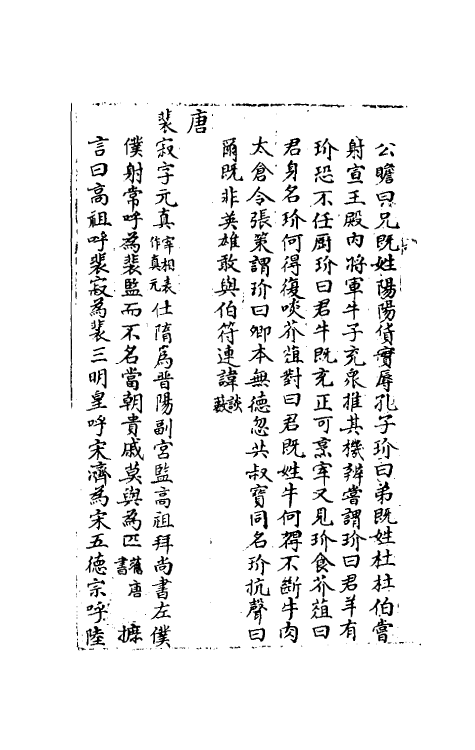 公瞻曰兄既姓陽陽貨實辱孔子玠曰弟既姓杜杜伯嘗
射宣王殿內將軍牛子充衆推其機辨嘗謂玠曰君羊有
玠恐不任厨玠曰君牛既充正可烹宰又見玠食芥葅曰
君身名玠何得復啖芥葅對曰君既姓牛何得不斷牛肉
太倉令張策謂玠曰卿本無德忽共叔寶同名玠抗聲曰
爾既非英雄敢與伯符連諱談藪
唐
裴寂字元真宰相表作真元仕隋爲晋陽副宮監高祖拜尚書左僕
僕射常呼為裴監而不名當朝貴戚莫與為匹舊唐書 摭
言曰高祖呼裴寂為裴三明皇呼宋濟為宋五德宗呼陸